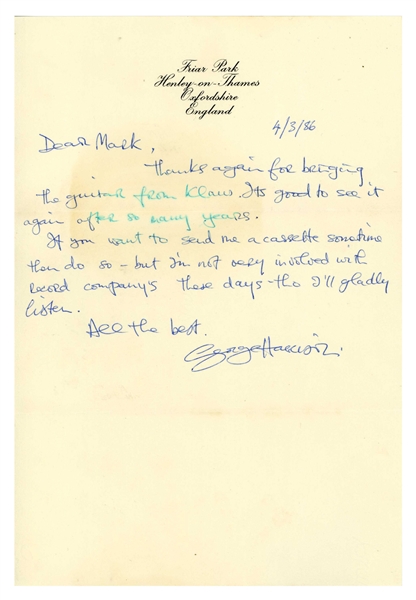 Friar Park
Henley-on-Thames
Oxfordshire
England
4/3/86
Dear Mark,
Thanks again for bringing
the guitar from Klaus. Its good to see it
again after so many years.
If you want to send me a cassette sometime
then do so - but I'm not very involved with
record company's these days - tho I'll gladly
listen.
All the best.
George Harrison.